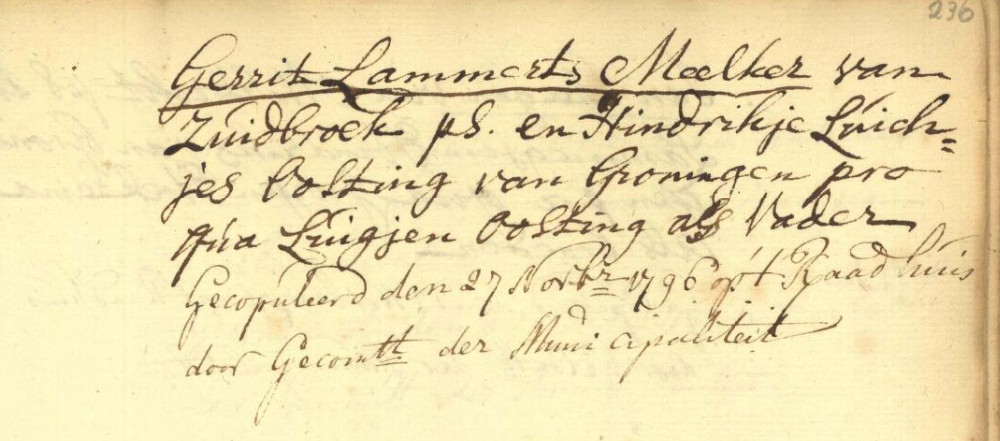 236
Gerrit Lammerts Meelker van
Zuidbroek ps. en Hindrikje Luich=
jes Oosting van Groningen pro
qua Luigjen Oosting als Vader
Gecopuleerd den 27 Novbr 1796 op 't Raadhuis
door Gecomtt der Municipaliteit